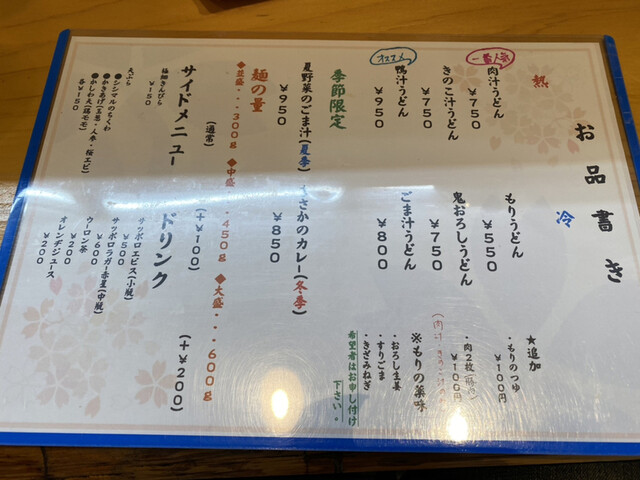 お品書き
熱
一番人気
肉汁うどん
￥750
きのこ汁うどん
￥750
オススメ
鴨汁うどん
￥950
冷
もりうどん
￥550
鬼おろしうどん
￥750
ごま汁うどん
￥800
★追加
・もりのつゆ
￥100円
・肉2枚
￥100円
※もりの薬味
・おろし生姜
・すりごま
・きざみねぎ
希望者はお申し付け
下さい。
季節限定
夏野菜のごま汁(夏季)
￥950
さかのカレー(冬季)
￥850
麺の量
◆並盛・・・300g
(通常)
◆中盛・・・450g
(+￥100)
◆大盛・・・600g
(+￥200)
サイドメニュー
極細きんぴら
￥150
天ぷら
●シシマルのちくわ
●かきあげ(玉葱・人参・桜エビ)
●かしわ天(鶏モモ)
各￥150
ドリンク
サッポロエビス(小瓶)
￥500
サッポロラガー赤星(中瓶)
￥600
ウーロン茶
￥200
オレンヂジュース
￥200